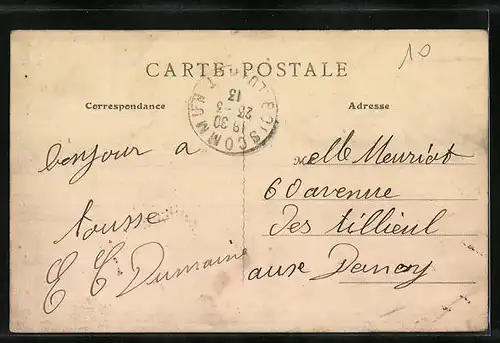 10
CARTE POSTALE
Correspondance
Adresse
COMMUN
18 30
23 - 3
13
bonjour a
tousse
E E Dumaine
Melle Meuriot
60 avenue
des tillieul